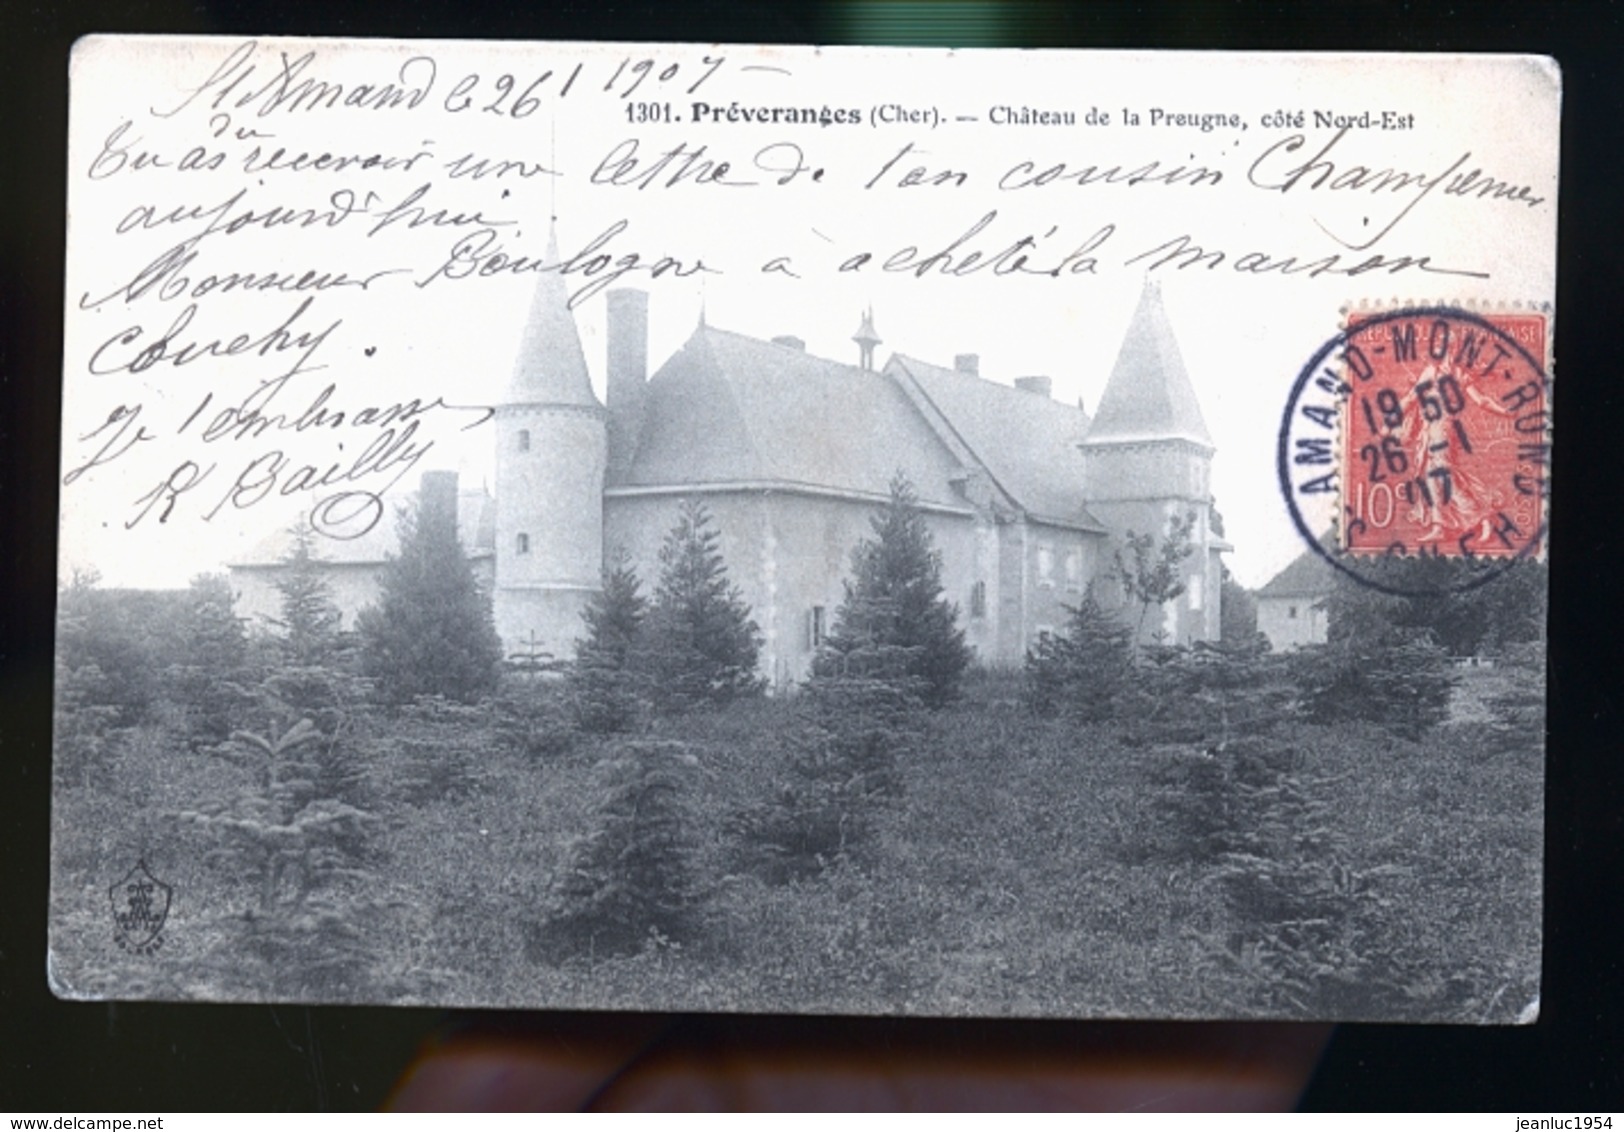 St Amand le 26/1 1907 —
1301. Préveranges (Cher). — Château de la Preugne, côté Nord-Est
du
Tu as recevoir une lettre de ton cousin
aujourd'hui
Monsieur Boulogne à acheté la maison
Couchy.
Je t'embrasse
R Bailly
ST AMAND-MONT-ROND
CHER
19 50
26 -1
07
10c
jeanluc1954